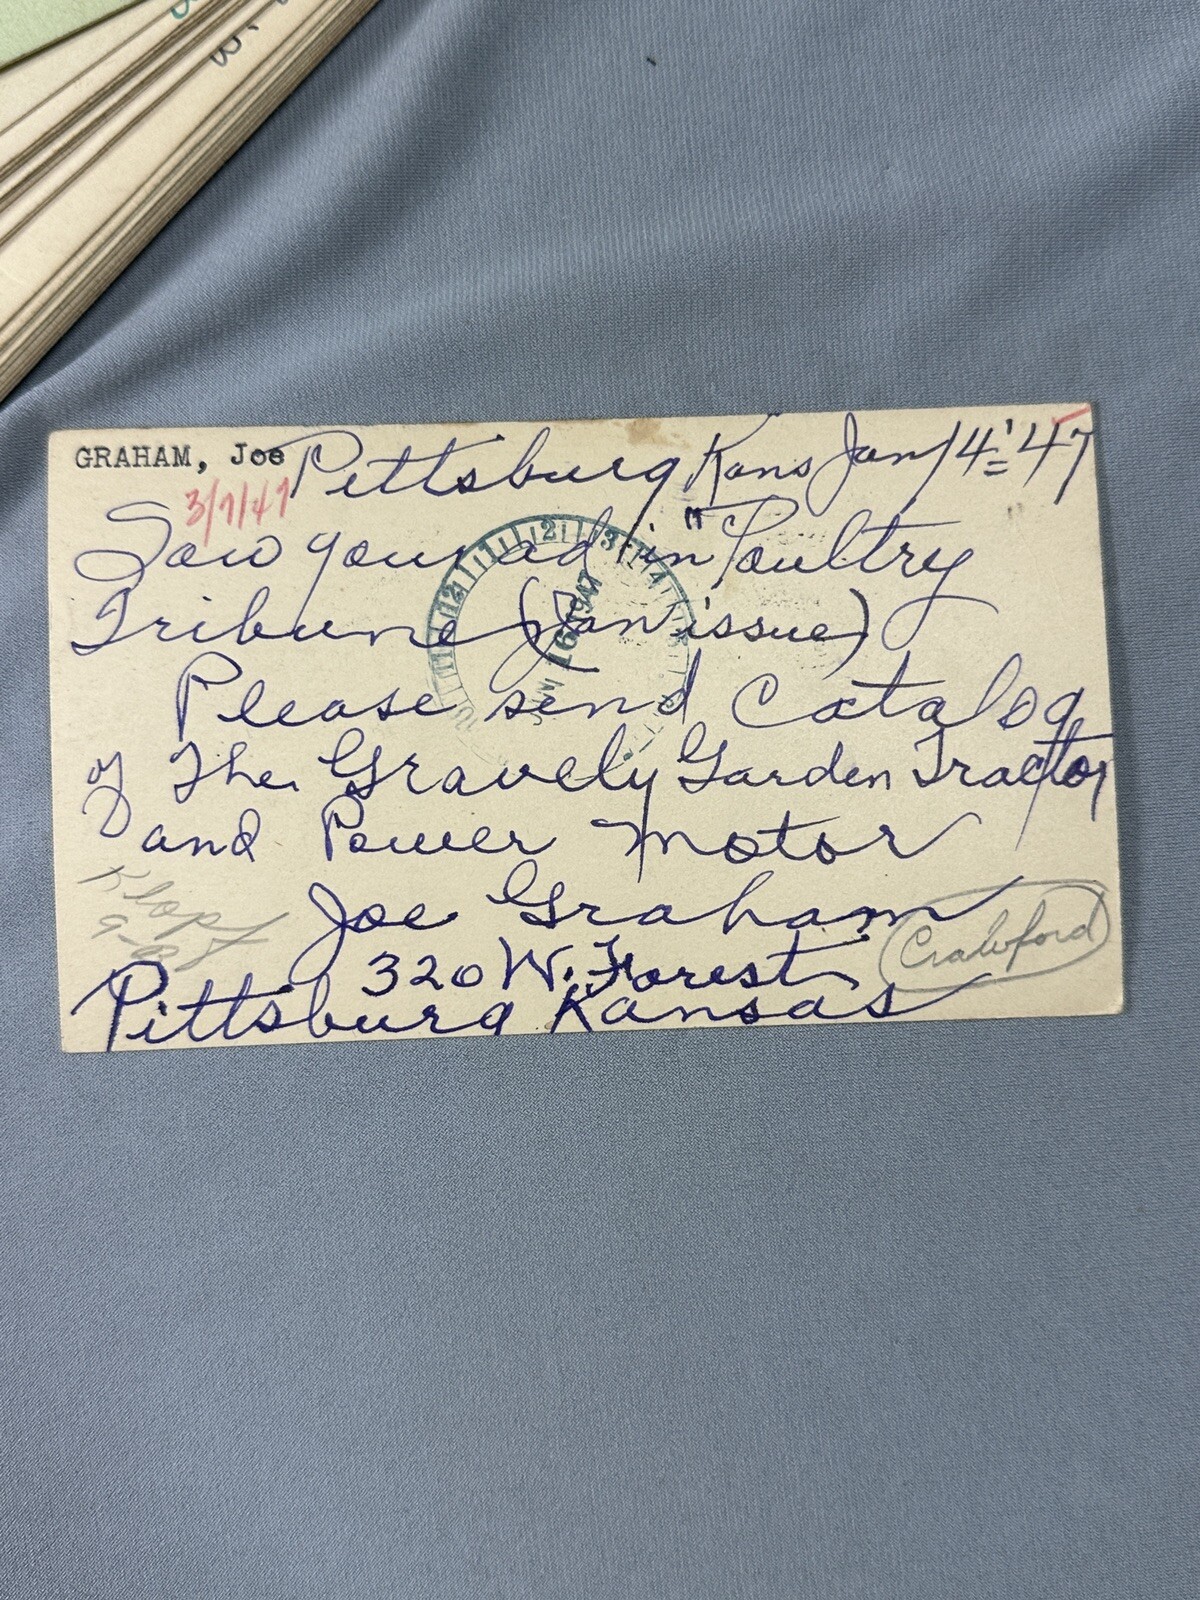 GRAHAM, Joe
Pittsburg Kans Jan 14-'47
3/7/47
Saw your ad in "Poultry
Tribune (Jan issue)
Please send Catalog
of The Gravely Garden Tractor
and Power Motor
Joe Graham
320 W. Forest
Pittsburg Kansas
Crawford
JAN 16 1947
12 1 2 3 4